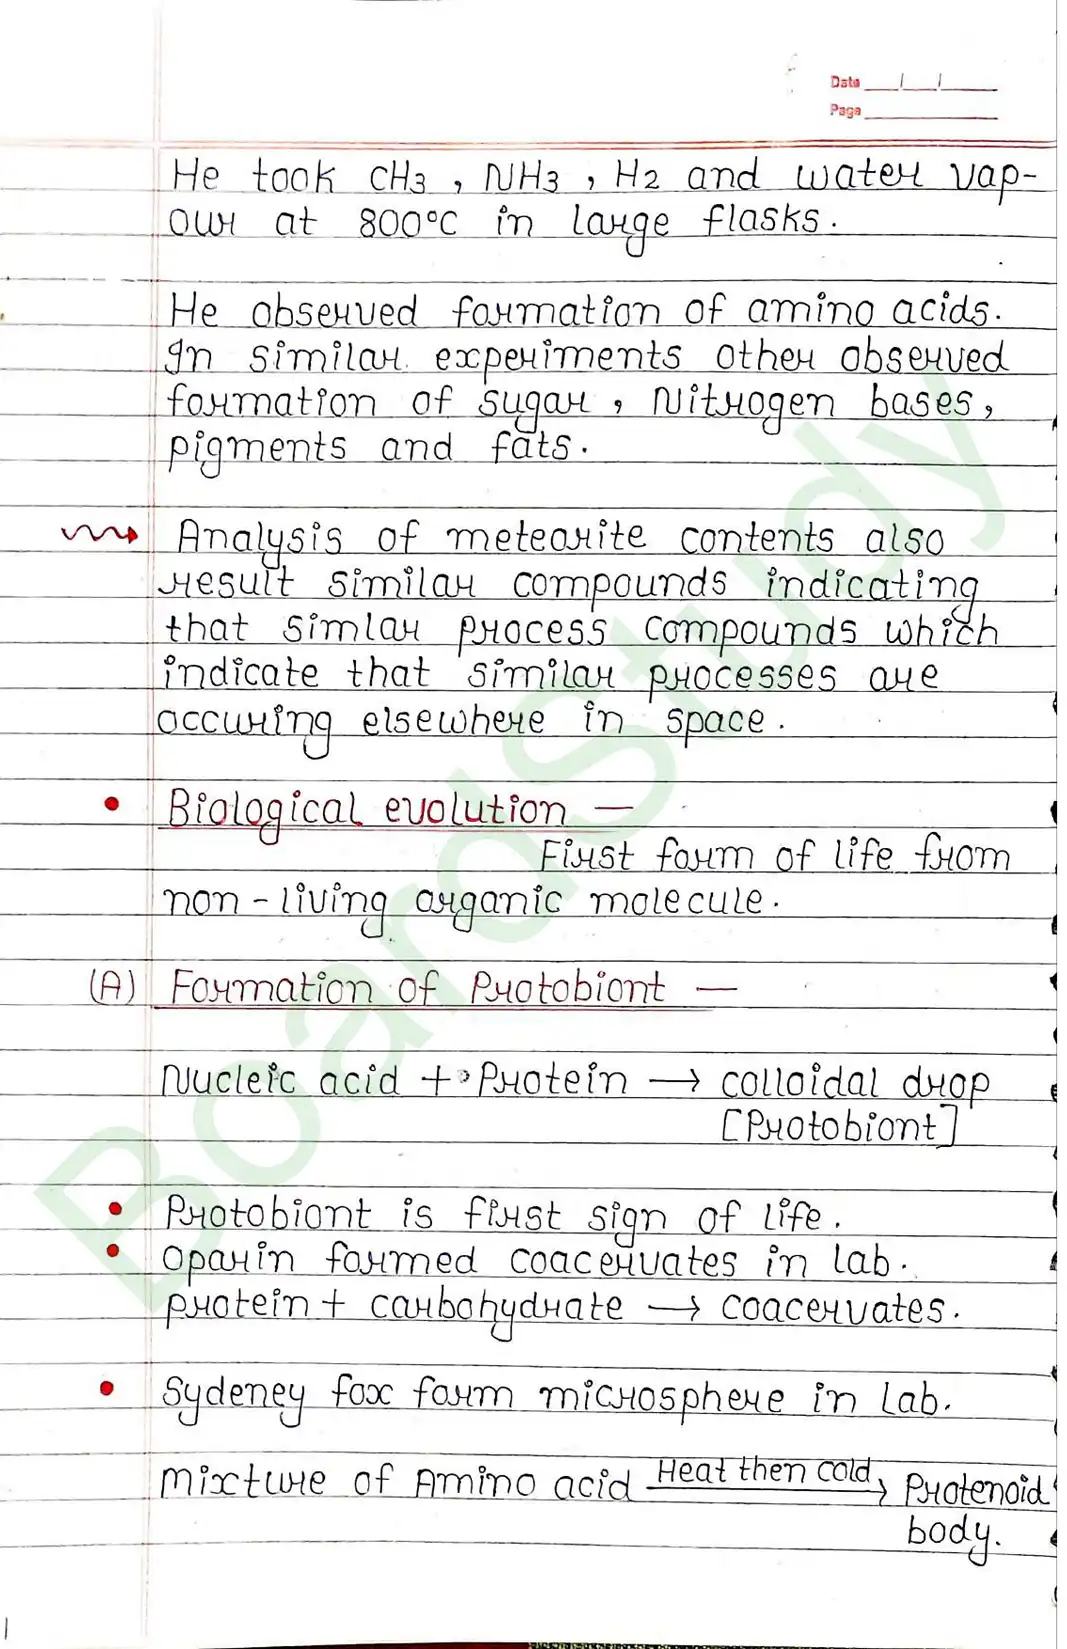 Date / /
Page
He took CH3 , NH3 , H2 and water vap-
our at 800°C in large flasks.
He observed formation of amino acids.
In similar experiments other observed
formation of sugar , Nitrogen bases,
pigments and fats.
Analysis of meteorite contents also
result similar compounds indicating
that simlar process compounds which
indicate that similar processes are
occuring elsewhere in space.
• Biological evolution —
First form of life from
non - living organic molecule.
(A) Formation of Protobiont —
Nucleic acid + Protein → colloidal drop
[Protobiont]
• Protobiont is first sign of life.
• Oparin formed coacervates in lab.
protein + carbohydrate → coacervates.
• Sydeney fox form microsphere in lab.
Mixture of Amino acid Heat then cold → Protenoid
body.
BoardStudy